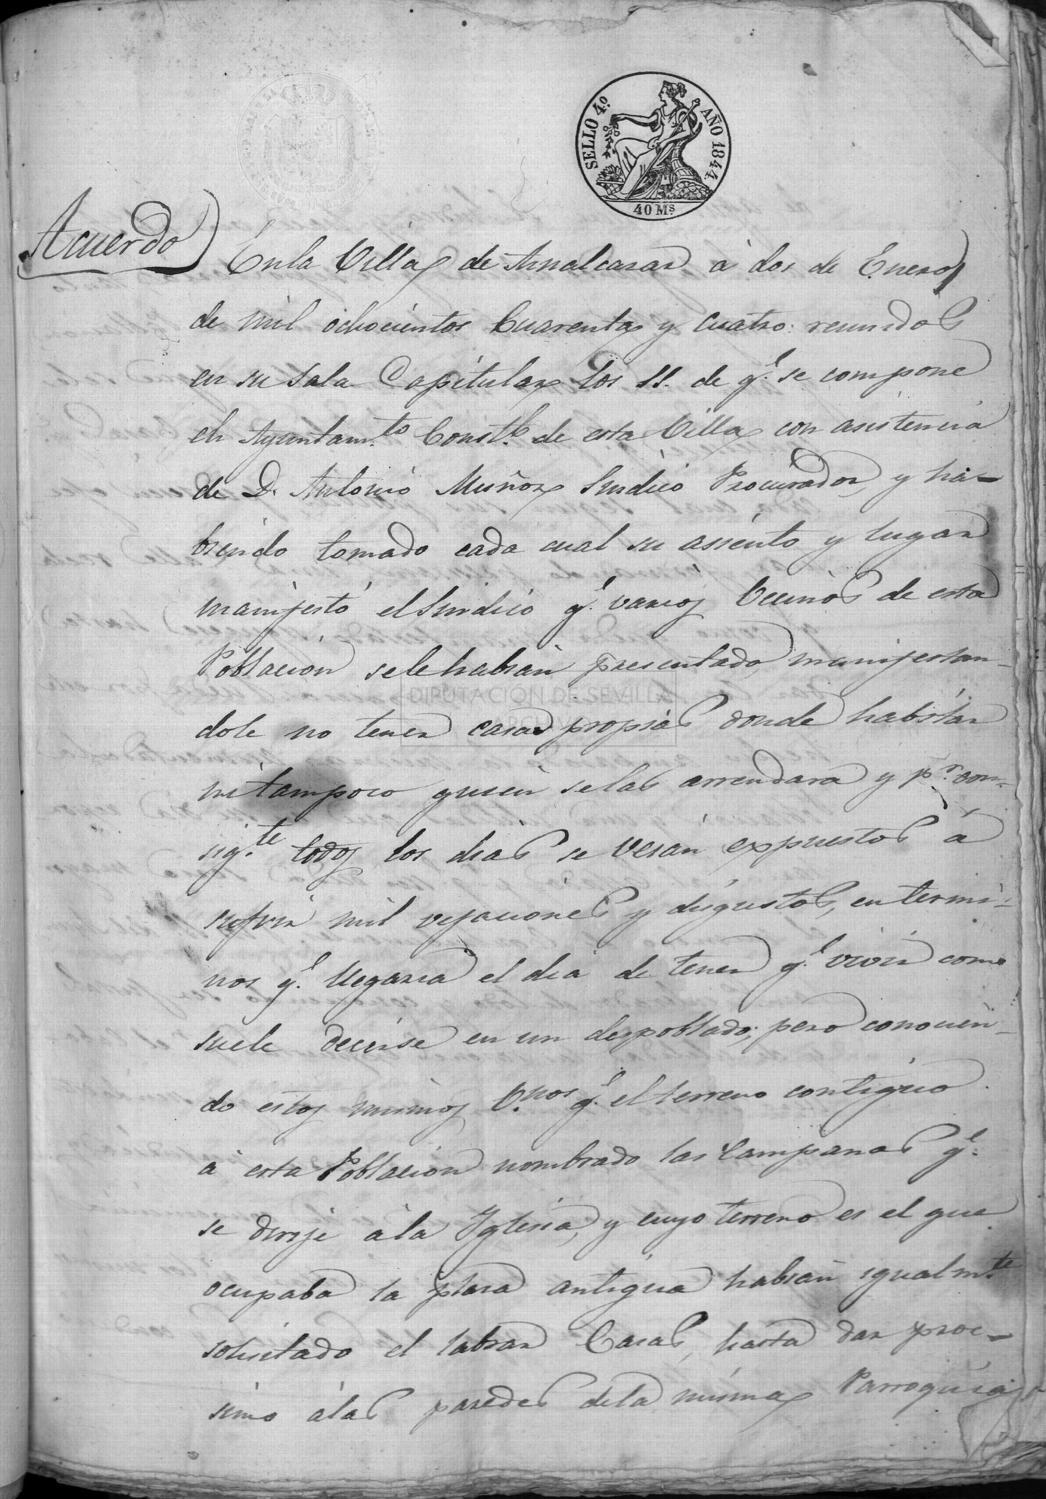 SELLO 4.º AÑO 1844.
40 Ms
Acuerdo
En la Villa de Aznalcazar à dos de Enero
de mil ochocientos Cuarenta y cuatro: reunidos
en su Sala Capitular los SS. de q.e se compone
el Ayuntam.to Const.l de esta Villa con asistencia
de D. Antonio Muñoz Sindico Procurador, y ha-
biendo tomado cada cual su asiento y lugar
manifestó el Sindico q.e varios Vecinos de esta
Poblacion se le habian presentado, manifestan-
dole no tener casas propias donde habitar
ni tampoco quien se las arrendara y p.r con-
sig.te todos los dias se veian expuestos á
sufrir mil vejaciones y disgustos, en termi-
nos q.e llegaria el dia de tener q.e vivir como
suele decirse en un despoblado; pero conocien-
do estos mismos V.nos q.e el terreno contiguo
a esta Poblacion nombrado las Campanas q.e
se dirije á la Iglesia, y cuyo terreno es el que
ocupaba la plaza antigua habian igualm.te
solicitado el labrar Casas, hasta dar proc-
simo á las paredes de la misma Parroquia
DIPUTACIÓN DE SEVILLA
ARCHIVO